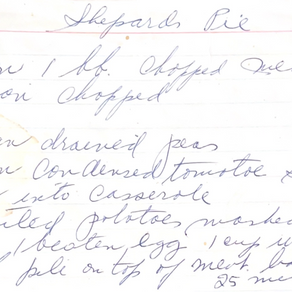 Shepards Pie
1 lb. chopped
chopped
drained peas
condensed tomatoe
into casserole
potatoes mashed
1 beaten egg 1 cup
pile on top of meat
25